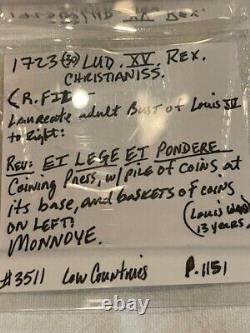 1723(30) LUD. XV. REX.
CHRISTIANISS.
(R. FIL
Laureate adult Bust of Louis XV
to right:
REV: ET LEGE ET PONDERE
Coining Press, w/pile of coins at
its base, and baskets of coins
ON LEFT:
(Louis was
13 years)
MONNOYE.
#3511 Low Countries P. 1151